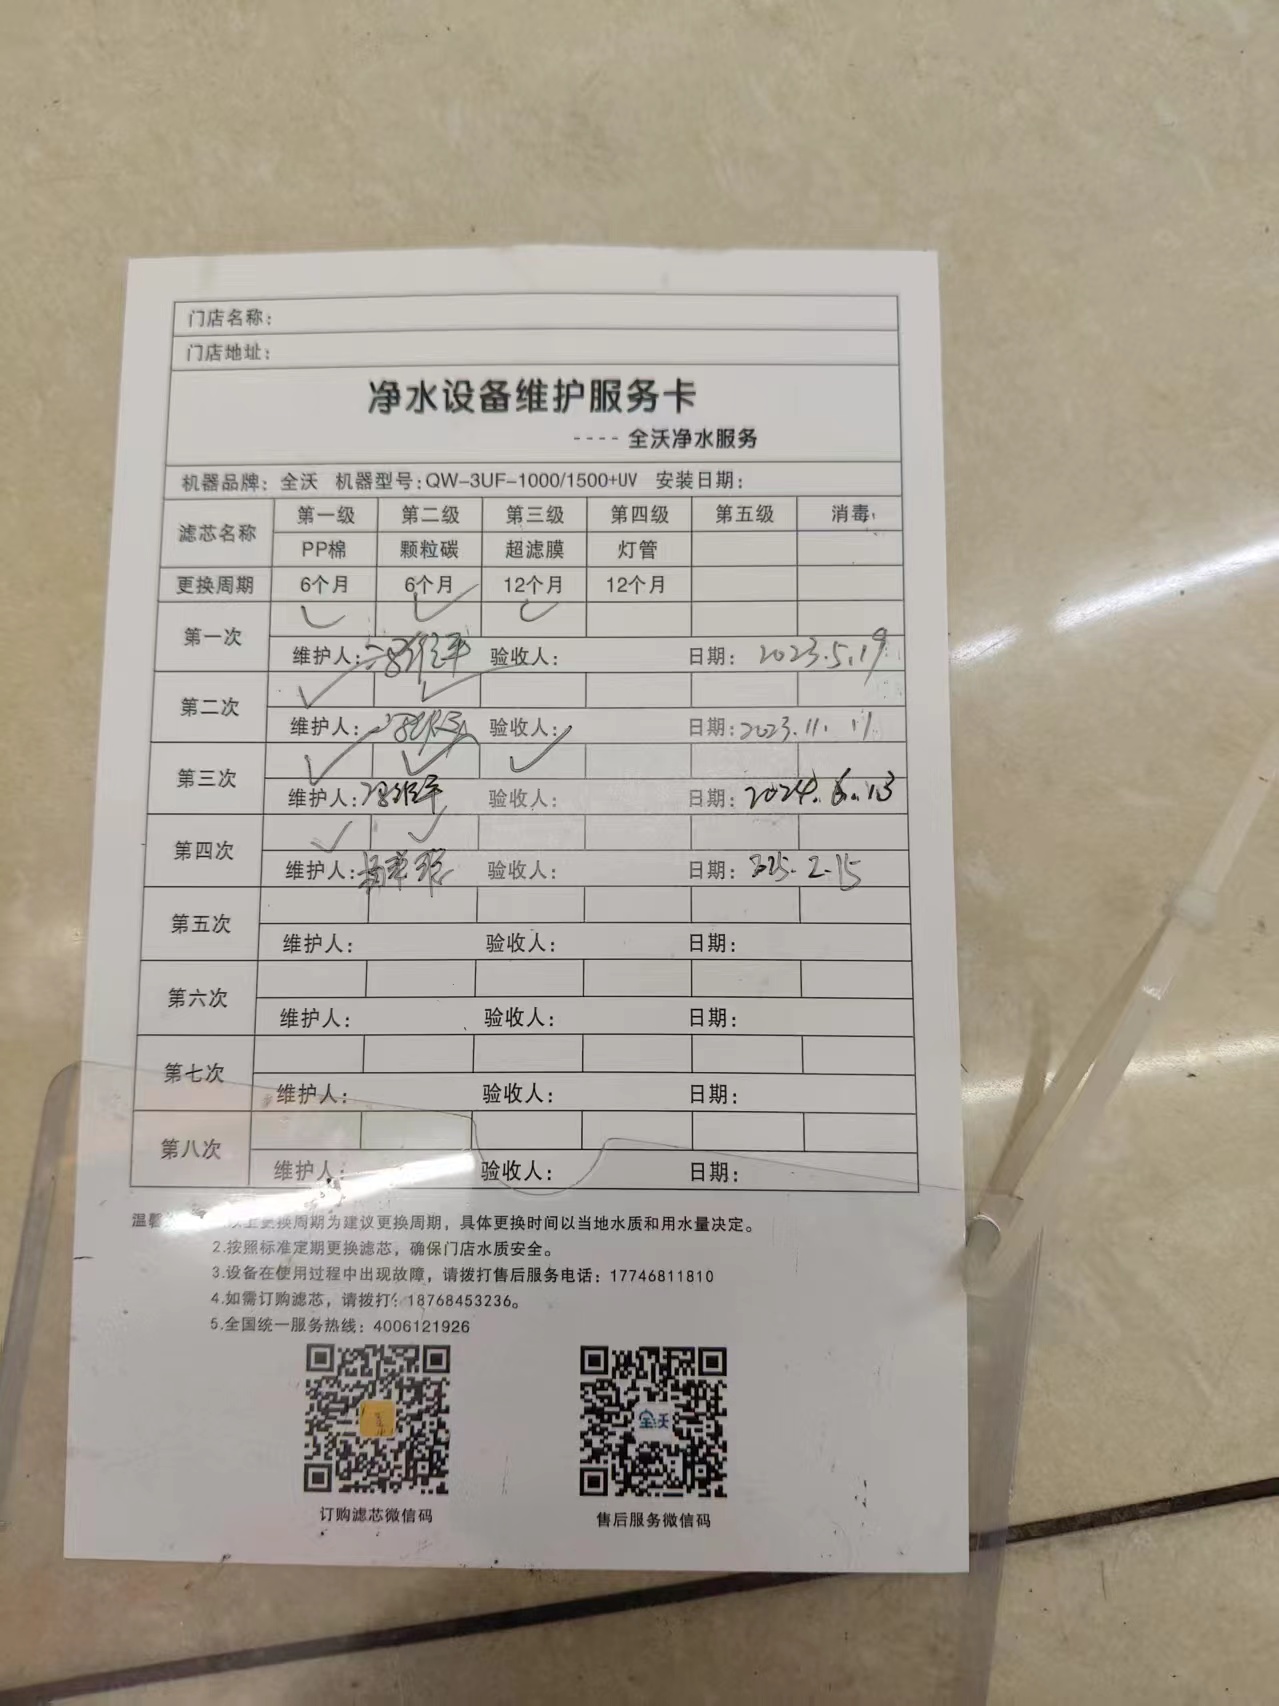 门店名称：
门店地址：
净水设备维护服务卡
---- 全沃净水服务
机器品牌：全沃 机器型号：QW-3UF-1000/1500+UV 安装日期：
滤芯名称 第一级 第二级 第三级 第四级 第五级 消毒
PP棉 颗粒碳 超滤膜 灯管
更换周期 6个月 6个月 12个月 12个月
第一次
维护人： 验收人： 日期：2023.5.19
第二次
维护人： 验收人： 日期：2023.11.11
第三次
维护人： 验收人： 日期：2024.6.13
第四次
维护人： 验收人： 日期：2025.2.15
第五次
维护人： 验收人： 日期：
第六次
维护人： 验收人： 日期：
第七次
维护人： 验收人： 日期：
第八次
维护人： 验收人： 日期：
温馨 以上更换周期为建议更换周期，具体更换时间以当地水质和用水量决定。
2.按照标准定期更换滤芯，确保门店水质安全。
3.设备在使用过程中出现故障，请拨打售后服务电话：17746811810
4.如需订购滤芯，请拨打：18768453236。
5.全国统一服务热线：4006121926
全沃
订购滤芯微信码 售后服务微信码